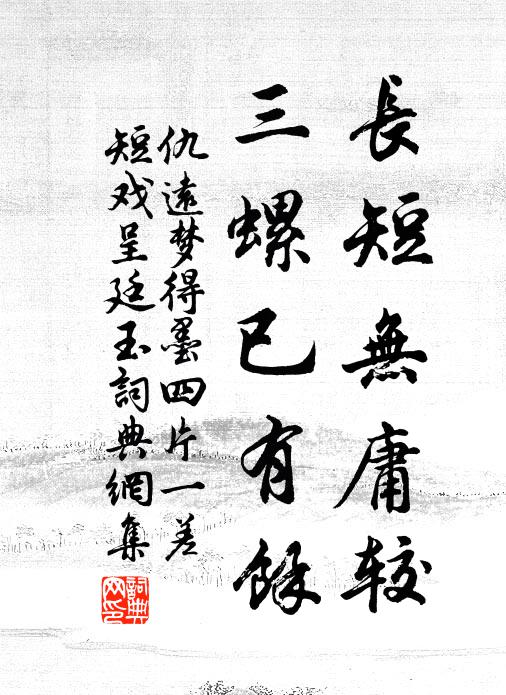 長短無庸較
三螺已有餘
仇遠梦得墨四片一差
短戏呈廷玉詞典網集
詞典网印